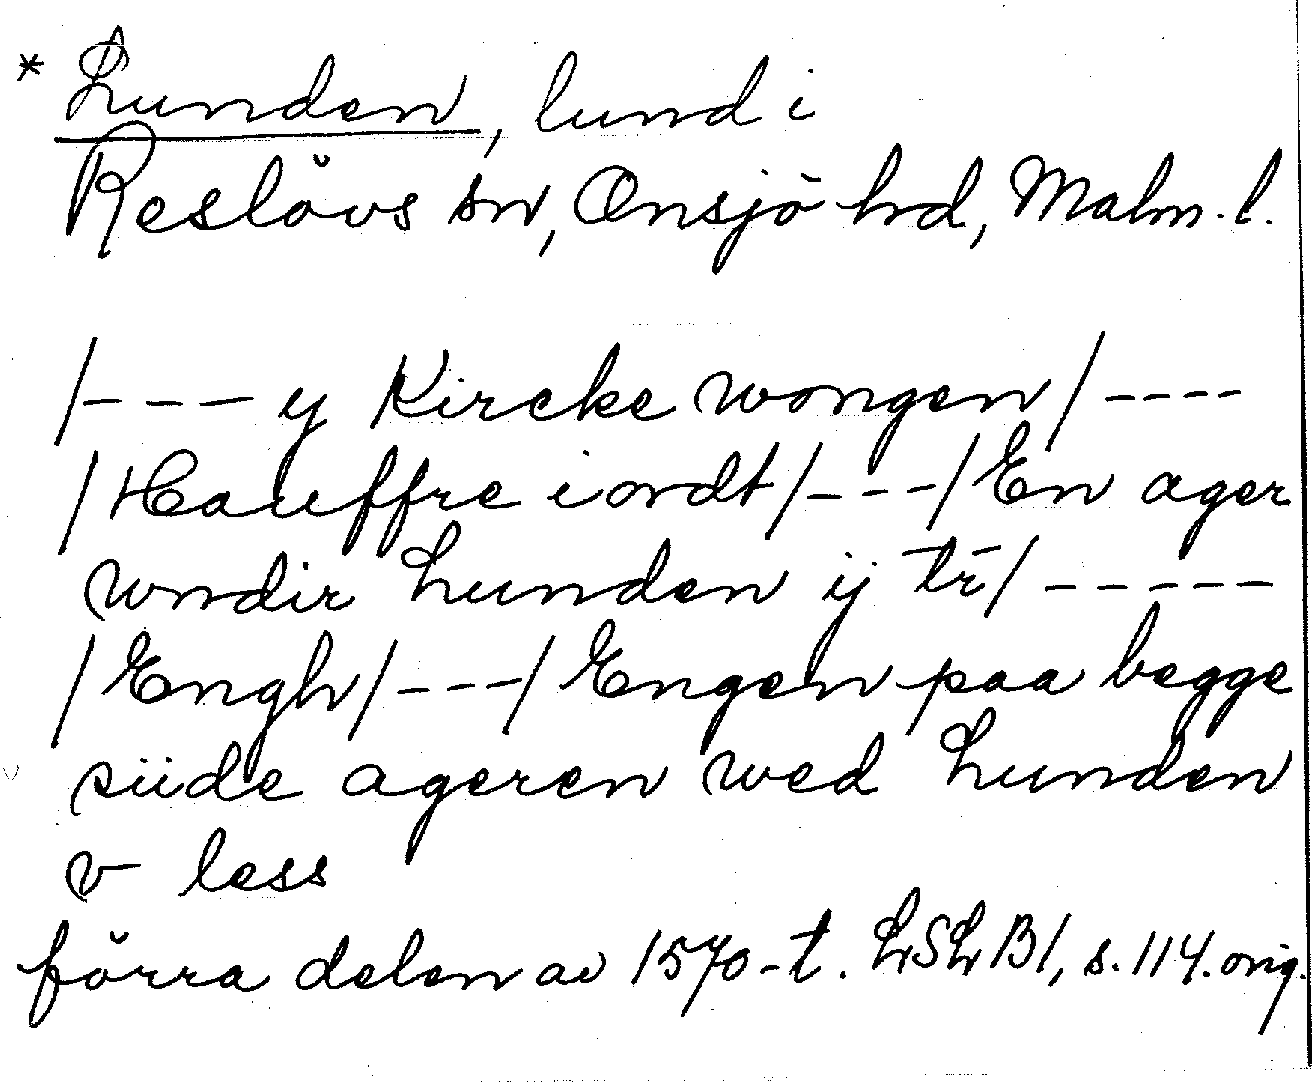 * Lunden, lund i
Reslövs sn, Onsjö hd, Malm. l.
/--- y Kircke wongen/----
/Hauffre iordt/---/En ager
wndir Lunden ij tr/-----
/Engh/---/Engen paa begge
siide ageren wed Lunden
v less
förra delen av 1570-t. LSLB1, s. 114. orig.